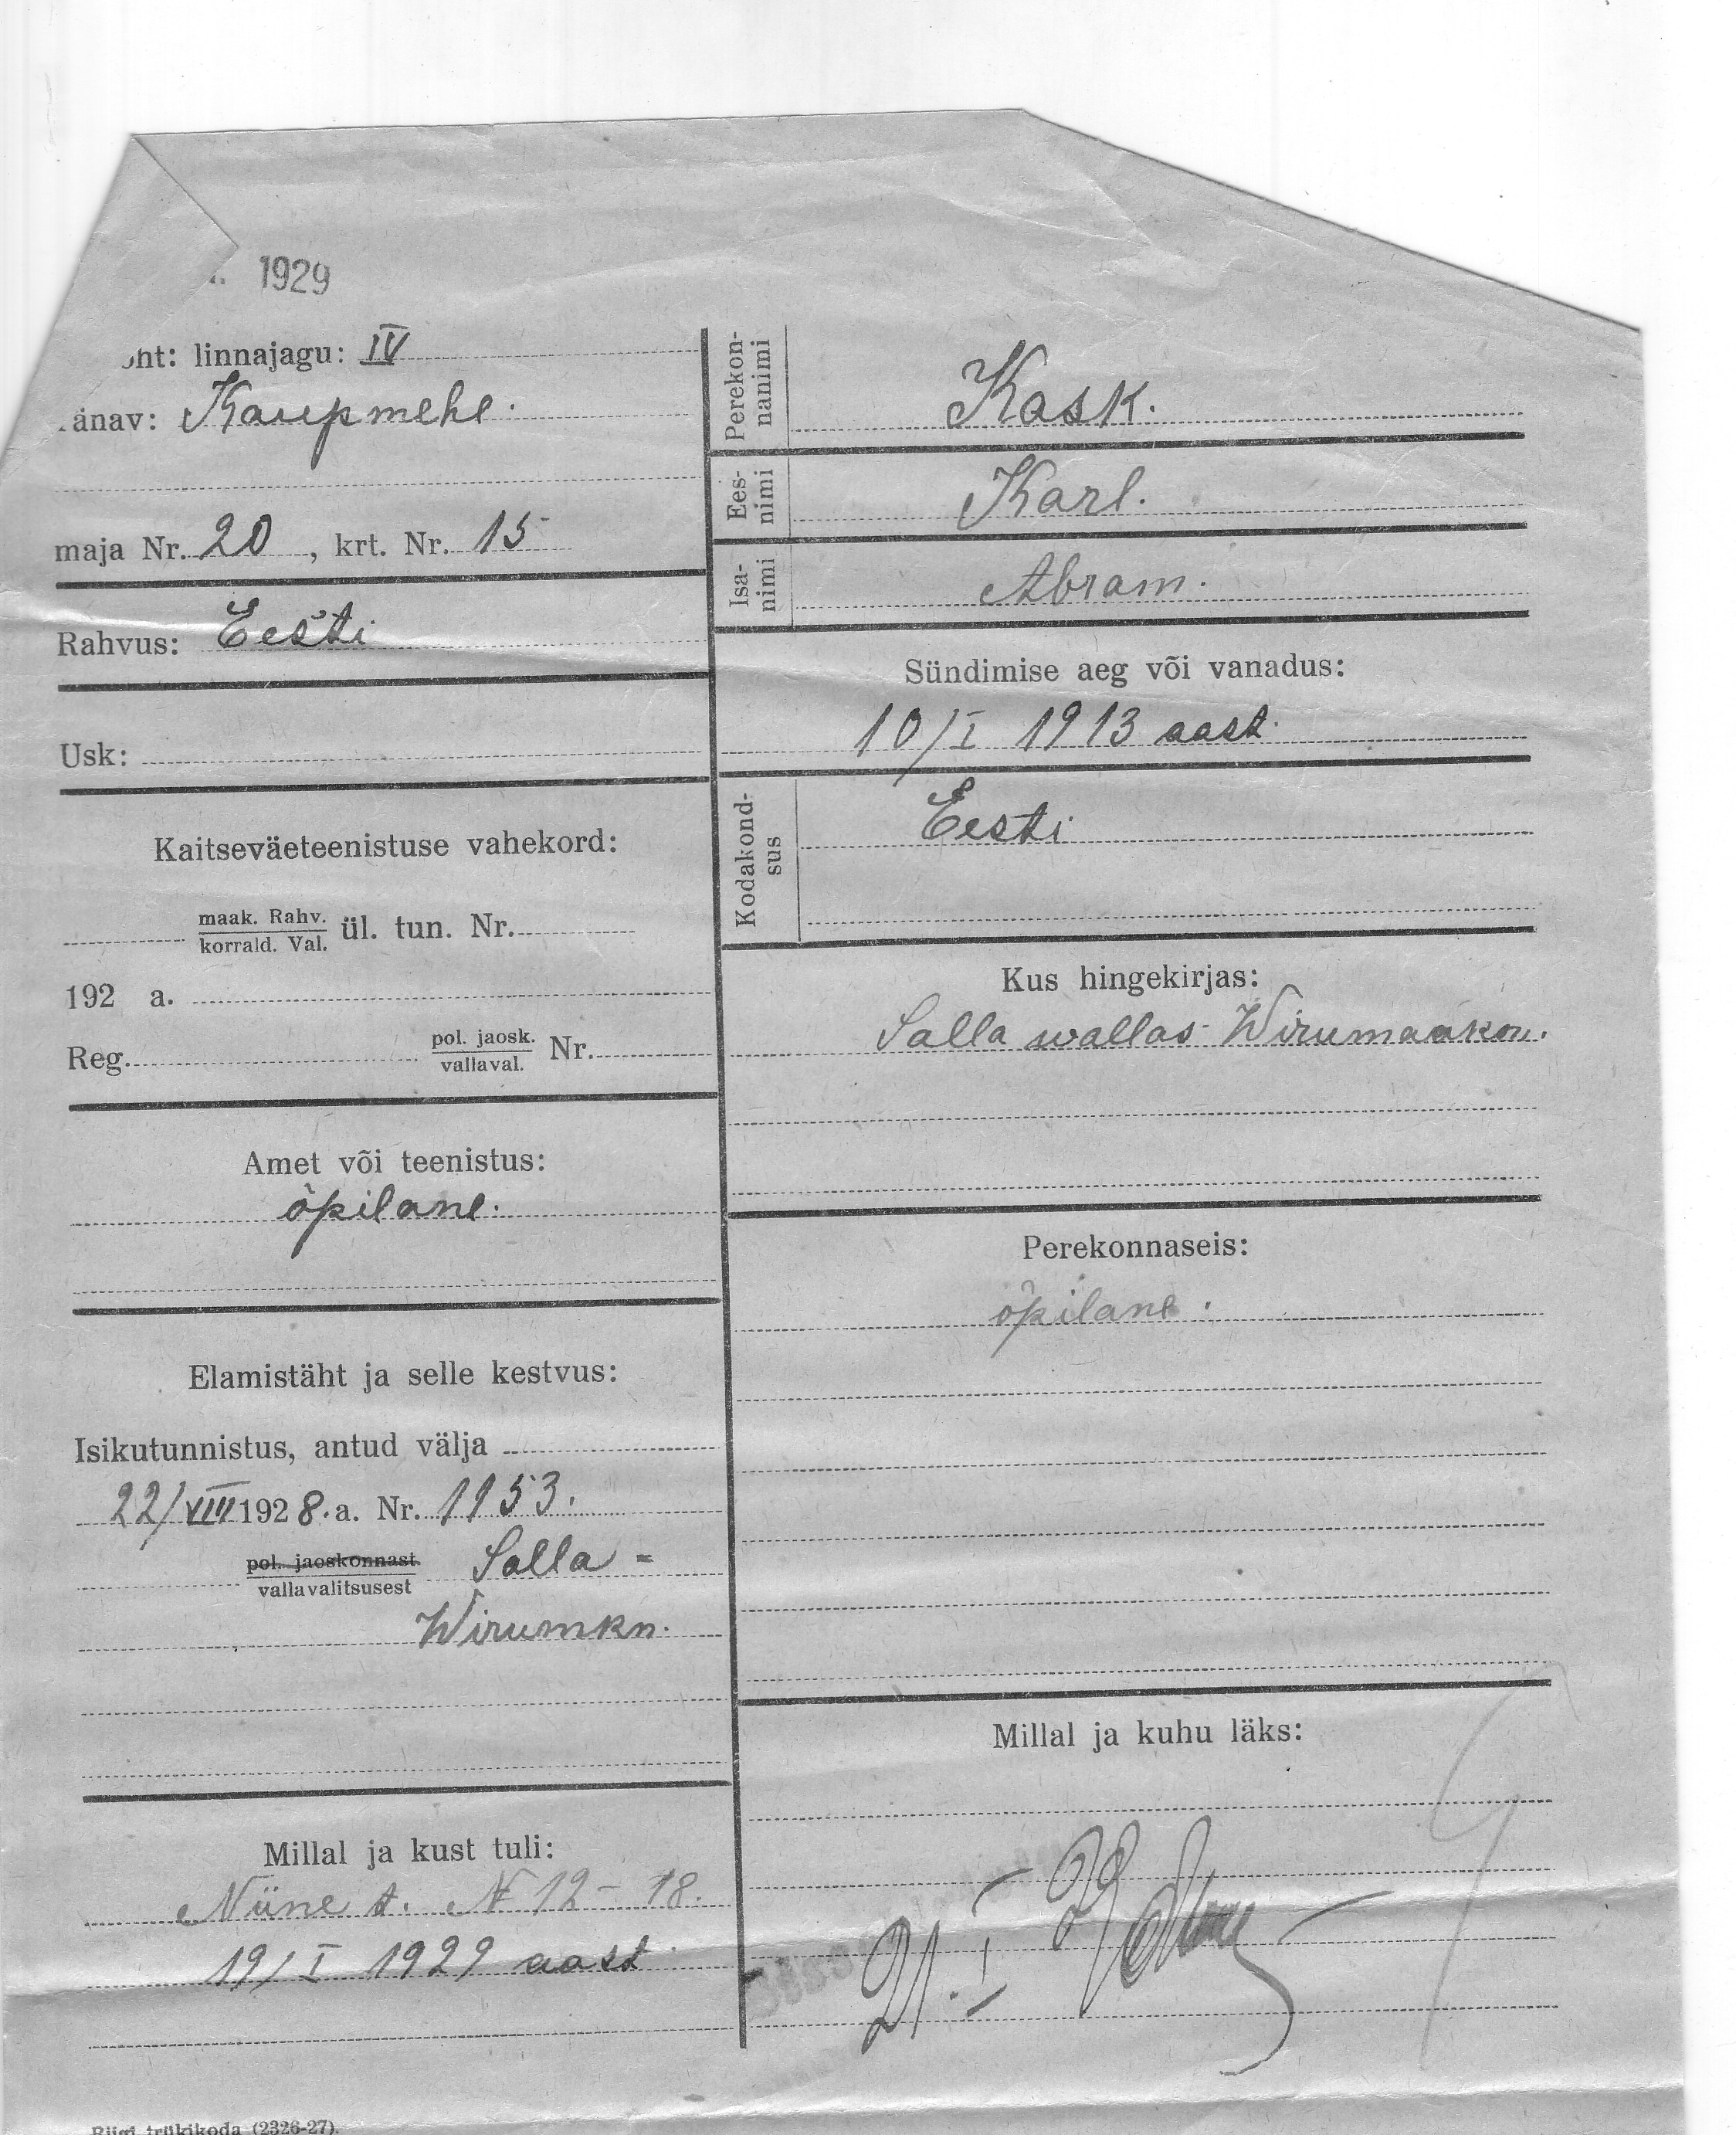 1929
linnajagu: IV
Kaupmehe.
maja Nr. 20, krt. Nr. 15
Rahvus: Eesti
Usk:
Kaitseväeteenistuse vahekord:
maak. Rahv.
korrald. Val.
ül. tun. Nr.
192 a.
Reg. pol. jaosk. Nr.
vallaval.
Amet või teenistus:
õpilane.
Elamistäht ja selle kestvus:
Isikutunnistus, antud välja
22/VIII 1928. a. Nr. 1153.
pol. jaoskonnast
vallavalitsusest
Salla =
Wirumkn.
Millal ja kust tuli:
Niine t. № 12 – 18.
19/I 1929 aast
Riigi trükikoda (2326-27).
Perekon-
nanimi
Kask.
Ees-
nimi
Karl.
Isa-
nimi
Abram.
Sündimise aeg või vanadus:
10/I 1913 aast.
Kodakond-
sus
Eesti
Kus hingekirjas:
Salla wallas Wirumaakon.
Perekonnaseis:
õpilane.
Millal ja kuhu läks:
21. I 29